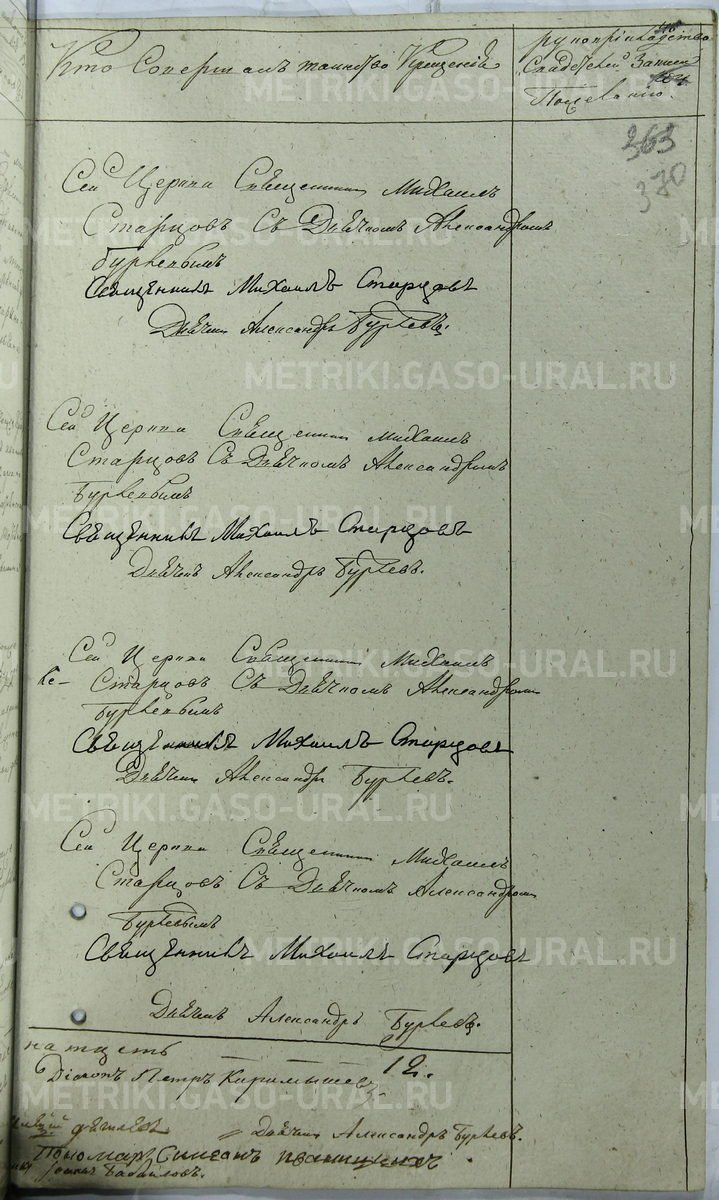 Кто Совершалъ таинство Крещенiя
рукоприкладство
Свидетелей Записи
По желанiю.
363
370
Сей Церкви Священник Михаилъ
Старцовъ Съ Дьячкомъ Александромъ
Бурлевымъ
Священникъ Михаилъ Старцовъ
Дьячекъ Александръ Бурлевъ.
Сей Церкви Священник Михаилъ
Старцовъ Съ Дьячкомъ Александромъ
Бурлевымъ
Священникъ Михаилъ Старцовъ
Дьячекъ Александръ Бурлевъ.
Сей Церкви Священник Михаилъ
Старцовъ Съ Дьячкомъ Александромъ
Бурлевымъ
Священникъ Михаилъ Старцовъ
Дьячекъ Александръ Бурлевъ.
Сей Церкви Священник Михаилъ
Старцовъ Съ Дьячкомъ Александромъ
Бурлевымъ
Священникъ Михаилъ Старцовъ
Дьячекъ Александръ Бурлевъ.
12.
Дiаконъ Петръ
Дьячекъ Александръ Бурлевъ.
Пономарь Симеонъ
METRIKI.GASO-URAL.RU